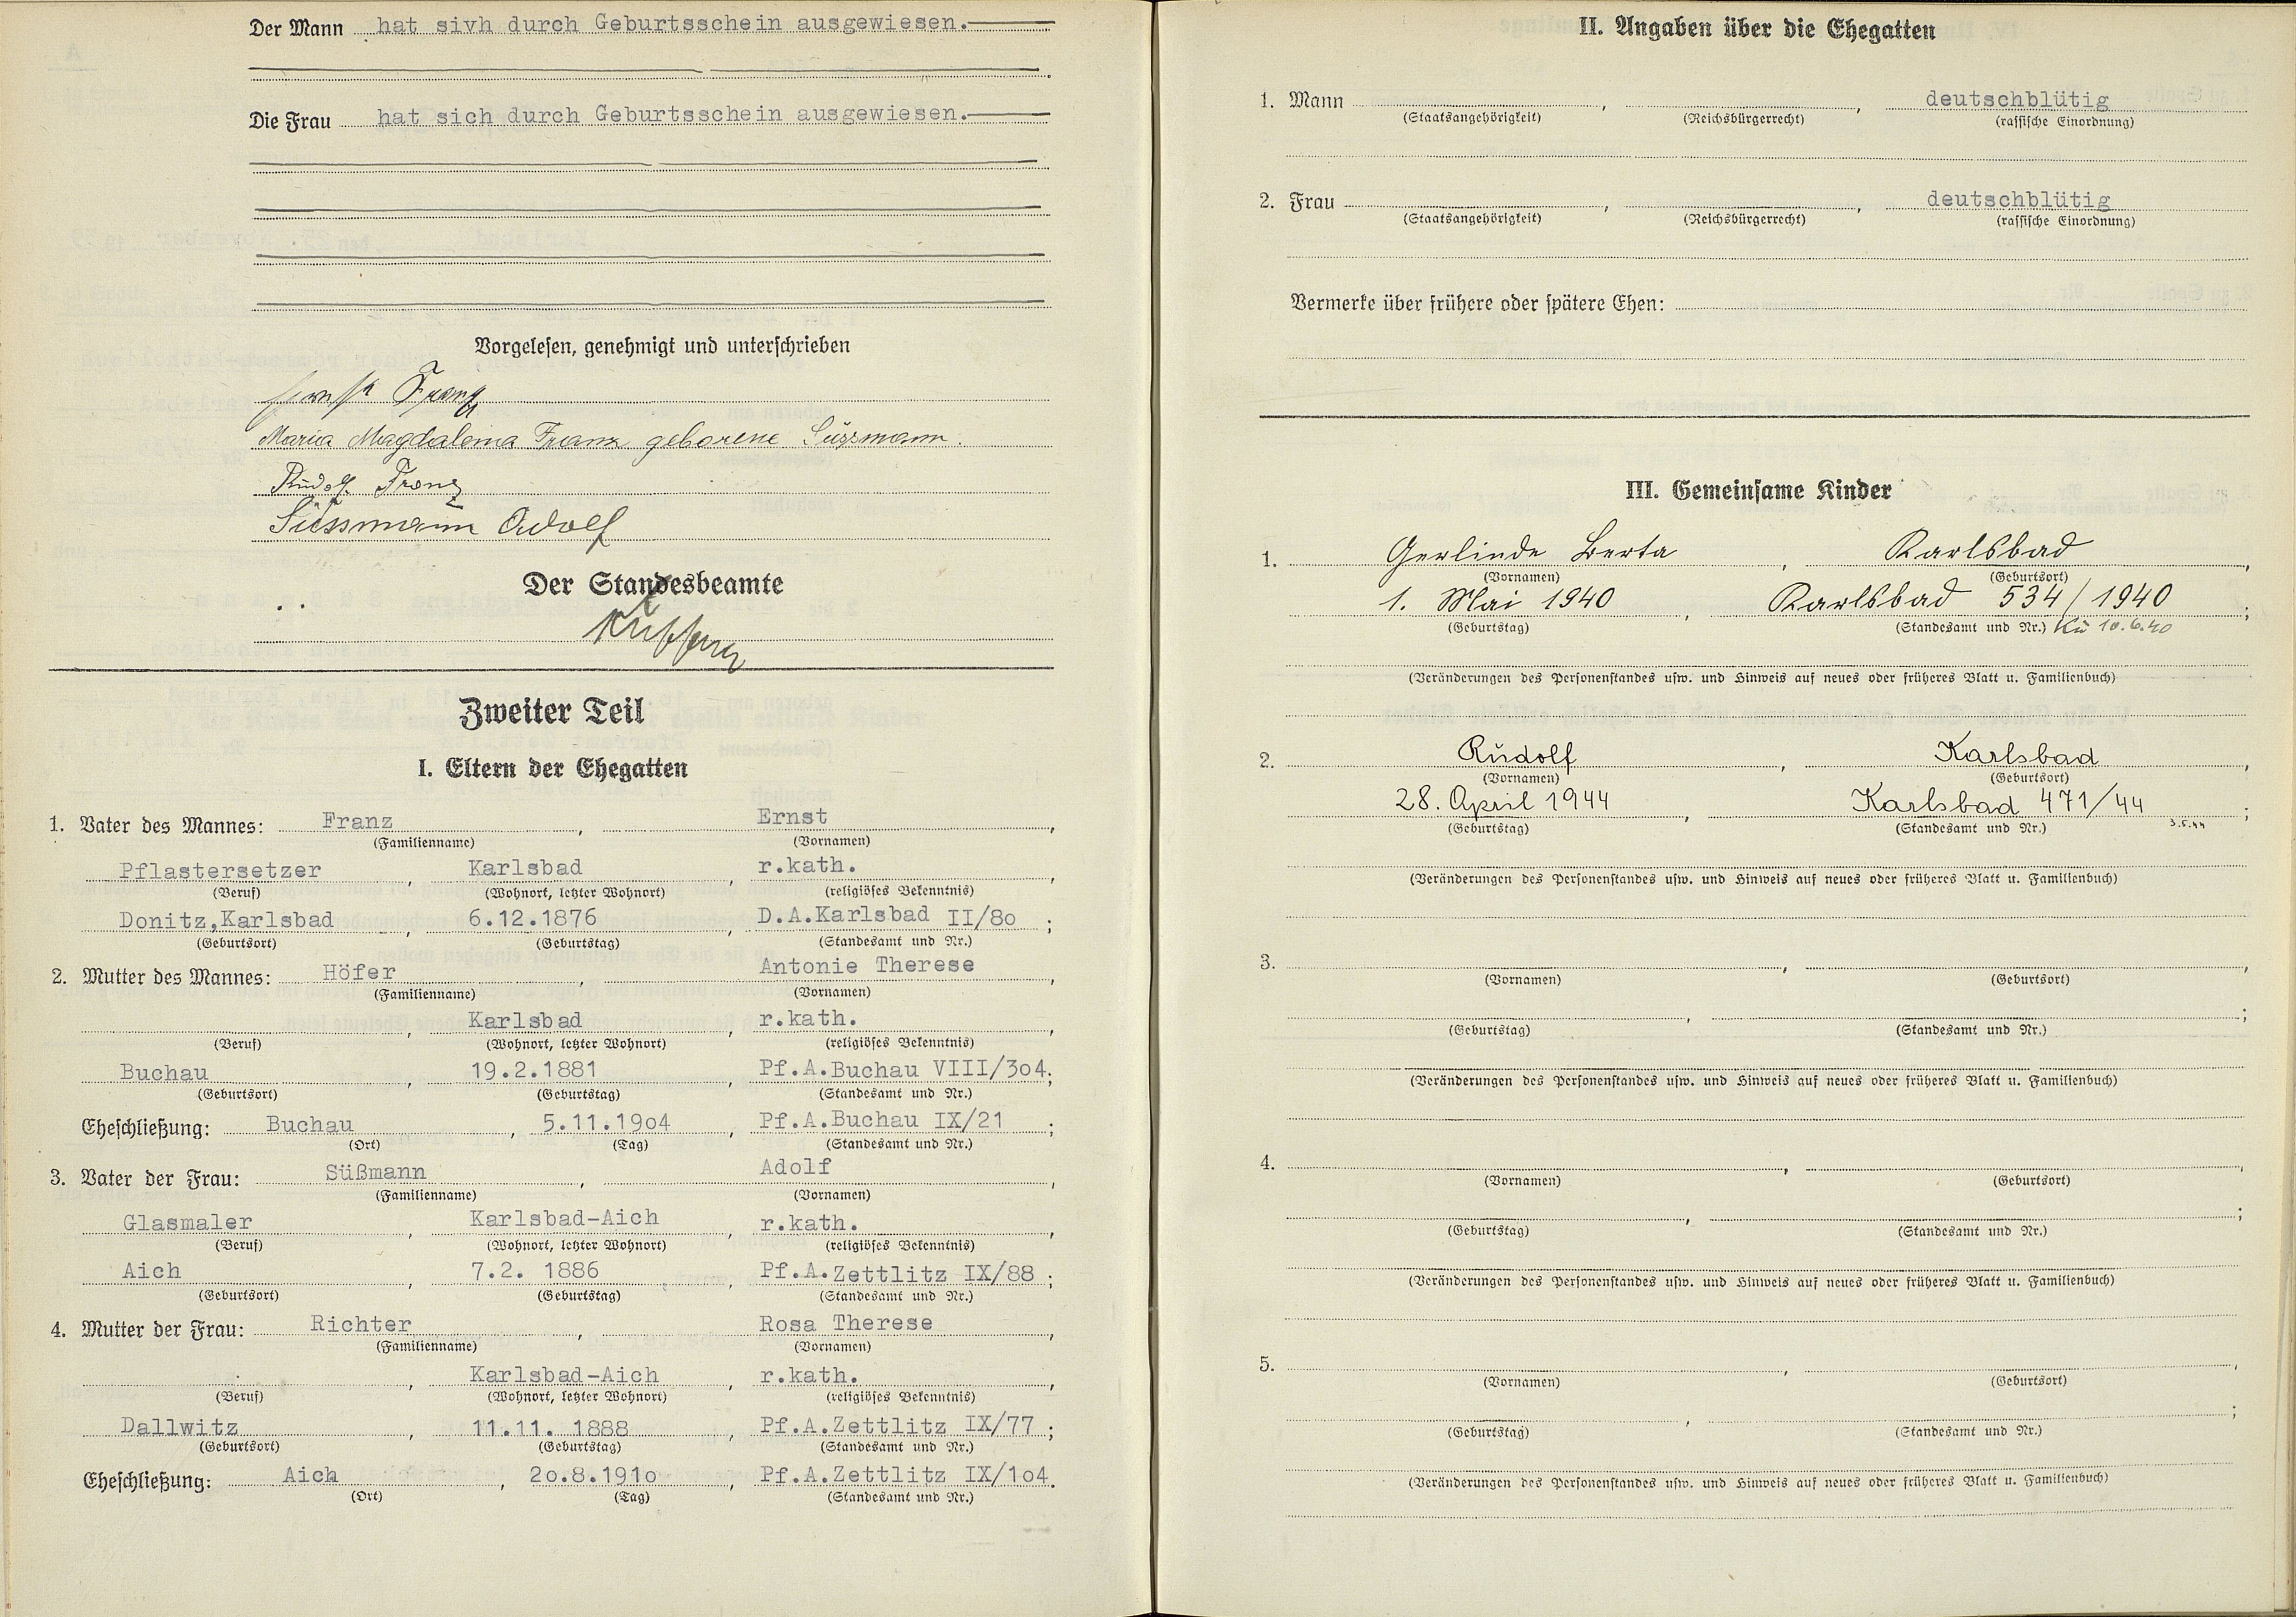 Der Mann hat sivh durch Geburtsschein ausgewiesen.
Die Frau hat sich durch Geburtsschein ausgewiesen.
Vorgelesen, genehmigt und unterschrieben
Ernst Franz
Maria Magdalena Franz geborene Süssmann.
Rudolf Franz
Süssmann Adolf
Der Standesbeamte
Zweiter Teil
I. Eltern der Ehegatten
1. Vater des Mannes: Franz, Ernst,
(Familienname) (Vornamen)
Pflastersetzer, Karlsbad, r.kath.,
(Beruf) (Wohnort, letzter Wohnort) (religiöses Bekenntnis)
Donitz,Karlsbad, 6.12.1876, D.A.Karlsbad II/8o;
(Geburtsort) (Geburtstag) (Standesamt und Nr.)
2. Mutter des Mannes: Höfer, Antonie Therese,
(Familienname) (Vornamen)
, Karlsbad, r.kath.,
(Beruf) (Wohnort, letzter Wohnort) (religiöses Bekenntnis)
Buchau, 19.2.1881, Pf.A.Buchau VIII/3o4;
(Geburtsort) (Geburtstag) (Standesamt und Nr.)
Eheschließung: Buchau, 5.11.19o4, Pf.A.Buchau IX/21;
(Ort) (Tag) (Standesamt und Nr.)
3. Vater der Frau: Süßmann, Adolf,
(Familienname) (Vornamen)
Glasmaler, Karlsbad-Aich, r.kath.,
(Beruf) (Wohnort, letzter Wohnort) (religiöses Bekenntnis)
Aich, 7.2. 1886, Pf.A.Zettlitz IX/88;
(Geburtsort) (Geburtstag) (Standesamt und Nr.)
4. Mutter der Frau: Richter, Rosa Therese,
(Familienname) (Vornamen)
, Karlsbad-Aich, r.kath.,
(Beruf) (Wohnort, letzter Wohnort) (religiöses Bekenntnis)
Dallwitz, 11.11. 1888, Pf.A.Zettlitz IX/77;
(Geburtsort) (Geburtstag) (Standesamt und Nr.)
Eheschließung: Aich, 2o.8.191o, Pf.A.Zettlitz IX/1o4.
(Ort) (Tag) (Standesamt und Nr.)
II. Angaben über die Ehegatten
1. Mann , , deutschblütig
(Staatsangehörigkeit) (Reichsbürgerrecht) (rassische Einordnung)
2. Frau , , deutschblütig
(Staatsangehörigkeit) (Reichsbürgerrecht) (rassische Einordnung)
Vermerke über frühere oder spätere Ehen:
III. Gemeinsame Kinder
1. Gerlinde Berta, Karlsbad,
(Vornamen) (Geburtsort)
1. Mai 1940, Karlsbad 534/1940;
(Geburtstag) (Standesamt und Nr.) Kü 10.6.40
(Veränderungen des Personenstandes usw. und Hinweis auf neues oder früheres Blatt u. Familienbuch)
2. Rudolf, Karlsbad,
(Vornamen) (Geburtsort)
28. April 1944, Karlsbad 471/44;
(Geburtstag) (Standesamt und Nr.) 3.5.44
(Veränderungen des Personenstandes usw. und Hinweis auf neues oder früheres Blatt u. Familienbuch)
3. , ,
(Vornamen) (Geburtsort)
, ;
(Geburtstag) (Standesamt und Nr.)
(Veränderungen des Personenstandes usw. und Hinweis auf neues oder früheres Blatt u. Familienbuch)
4. , ,
(Vornamen) (Geburtsort)
, ;
(Geburtstag) (Standesamt und Nr.)
(Veränderungen des Personenstandes usw. und Hinweis auf neues oder früheres Blatt u. Familienbuch)
5. , ,
(Vornamen) (Geburtsort)
, ;
(Geburtstag) (Standesamt und Nr.)
(Veränderungen des Personenstandes usw. und Hinweis auf neues oder früheres Blatt u. Familienbuch)